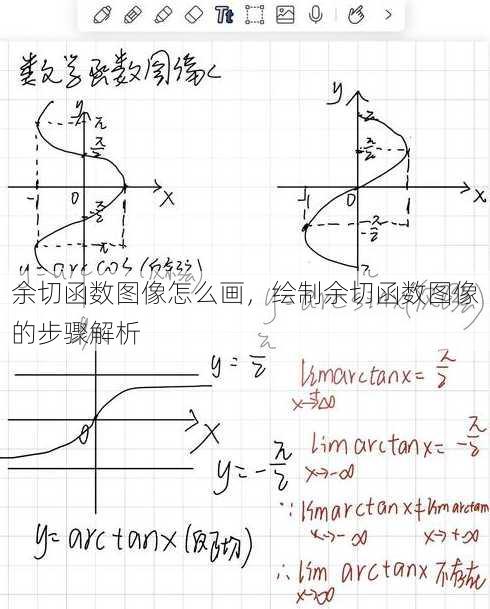 数学函数图像
y
π
π/2
-1
0
x
-π/2
-π
y=arccosx(反余弦)
y
π
π/2
-1
0
x
-π/2
π
余切函数图像怎么画，绘制余切函数图像
的步骤解析
y=π/2
0
x
y=-π/2
y=arctanx(反正切)
lim arctanx=π/2
x→+∞
lim arctanx=-π/2
x→-∞
∵lim arctanx≠lim arctanx
x→-∞ x→+∞
∴lim arctanx不存在
x→∞